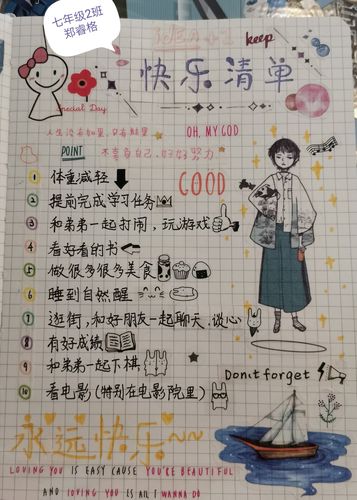 七年级2班
郑睿格
keep
快乐清单
Special Day
人生没有如果,只有结果
OH, MY GOD
POINT
不辜负自己,好好努力
GOOD
1 体重减轻
2 提前完成学习任务
3 和弟弟一起打闹,玩游戏
4 看好看的书
5 做很多很多美食
6 睡到自然醒
7 逛街,和好朋友一起聊天、谈心
8 有好成绩
9 和弟弟一起下棋
10 看电影(特别在电影院里)
Don't forget
永远快乐~~
LOVING YOU IS EASY CAUSE YOU'RE BEAUTIFUL
AND LOVING YOU IS ALL I WANNA DO